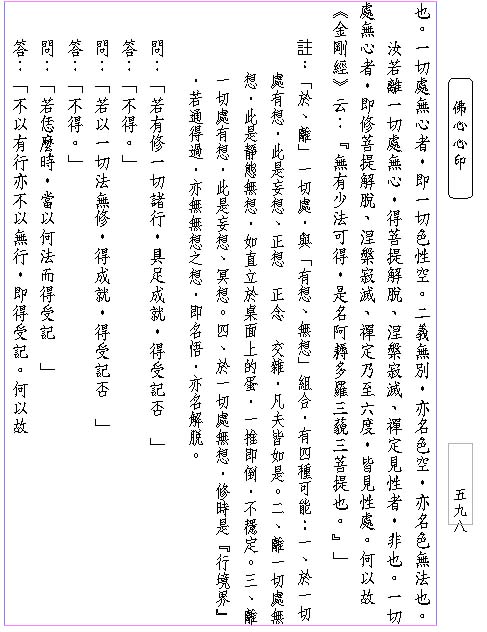 佛心心印
五九八
也。一切處無心者，即一切色性空。二義無別，亦名色空，亦名色無法也。
汝若離一切處無心，得菩提解脫、涅槃寂滅、禪定見性者，非也。一切
處無心者，即修菩提解脫、涅槃寂滅、禪定乃至六度，皆見性處。何以故
《金剛經》云：『無有少法可得，是名阿耨多羅三藐三菩提也。』」
註：「於、離」一切處，與「有想、無想」組合，有四種可能：一、於一切
處有想，此是妄想、正想　正念　交雜，凡夫皆如是。二、離一切處無
想，此是靜態無想，如直立於桌面上的蛋，一推即倒，不穩定。三、離
一切處有想，此是妄想、冥想。四、於一切處無想，修時是『行境界』
，若通得過，亦無無想之想，即名悟，亦名解脫。
問：「若有修一切諸行，具足成就，得受記否　」
答：「不得。」
問：「若以一切法無修，得成就，得受記否　」
答：「不得。」
問：「若恁麼時，當以何法而得受記　」
答：「不以有行亦不以無行，即得受記。何以故